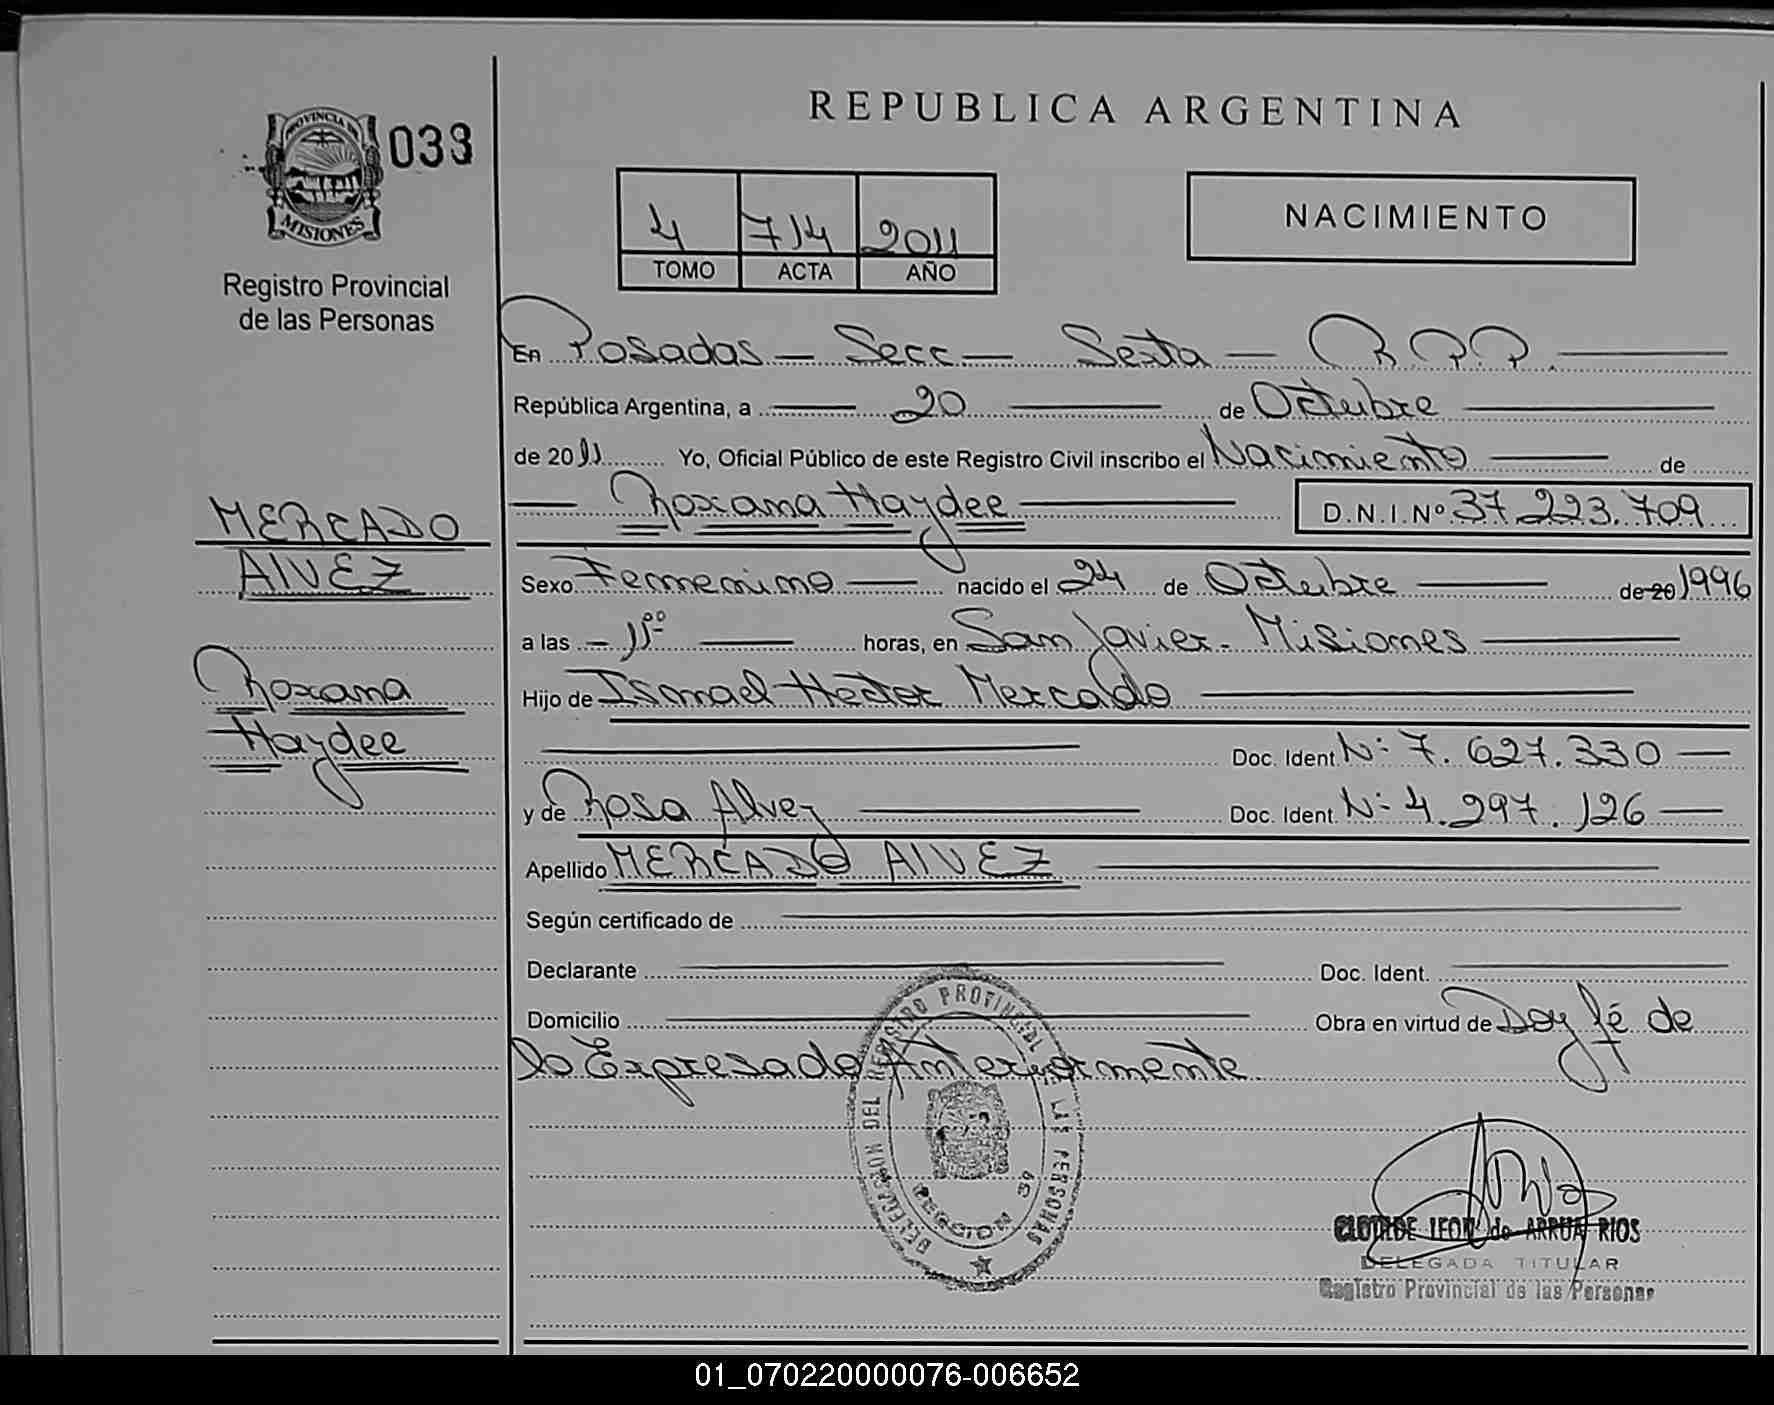 REPUBLICA ARGENTINA
PROVINCIA DE
MISIONES
039
Registro Provincial
de las Personas
4 714 2011
TOMO ACTA AÑO
NACIMIENTO
En Posadas — Secc — Sexta — R.P.P.
República Argentina, a — 20 — de Octubre
de 2011 Yo, Oficial Público de este Registro Civil inscribo el Nacimiento — de
— Roxana Haydee — D.N.I. Nº 37.223.709
MERCADO
ALVEZ
Roxana
Haydee
Sexo Femenino — nacido el 24 de Octubre — de 20 1996
a las - 11⁰⁰ — horas, en San Javier - Misiones
Hijo de Ismael Hector Mercado
Doc. Ident. Nº 7.627.330 —
y de Rosa Alvez — Doc. Ident. Nº 4.297.126 —
Apellido MERCADO ALVEZ
Según certificado de
Declarante — Doc. Ident.
Domicilio — Obra en virtud de Doy fé de
lo Expresado Anteriormente
DELEGACION DEL REGISTRO PROVINCIAL DE LAS PERSONAS
SECCION
CLOTILDE LEON de ARRUA RIOS
DELEGADA TITULAR
Registro Provincial de las Personas
01_070220000076-006652